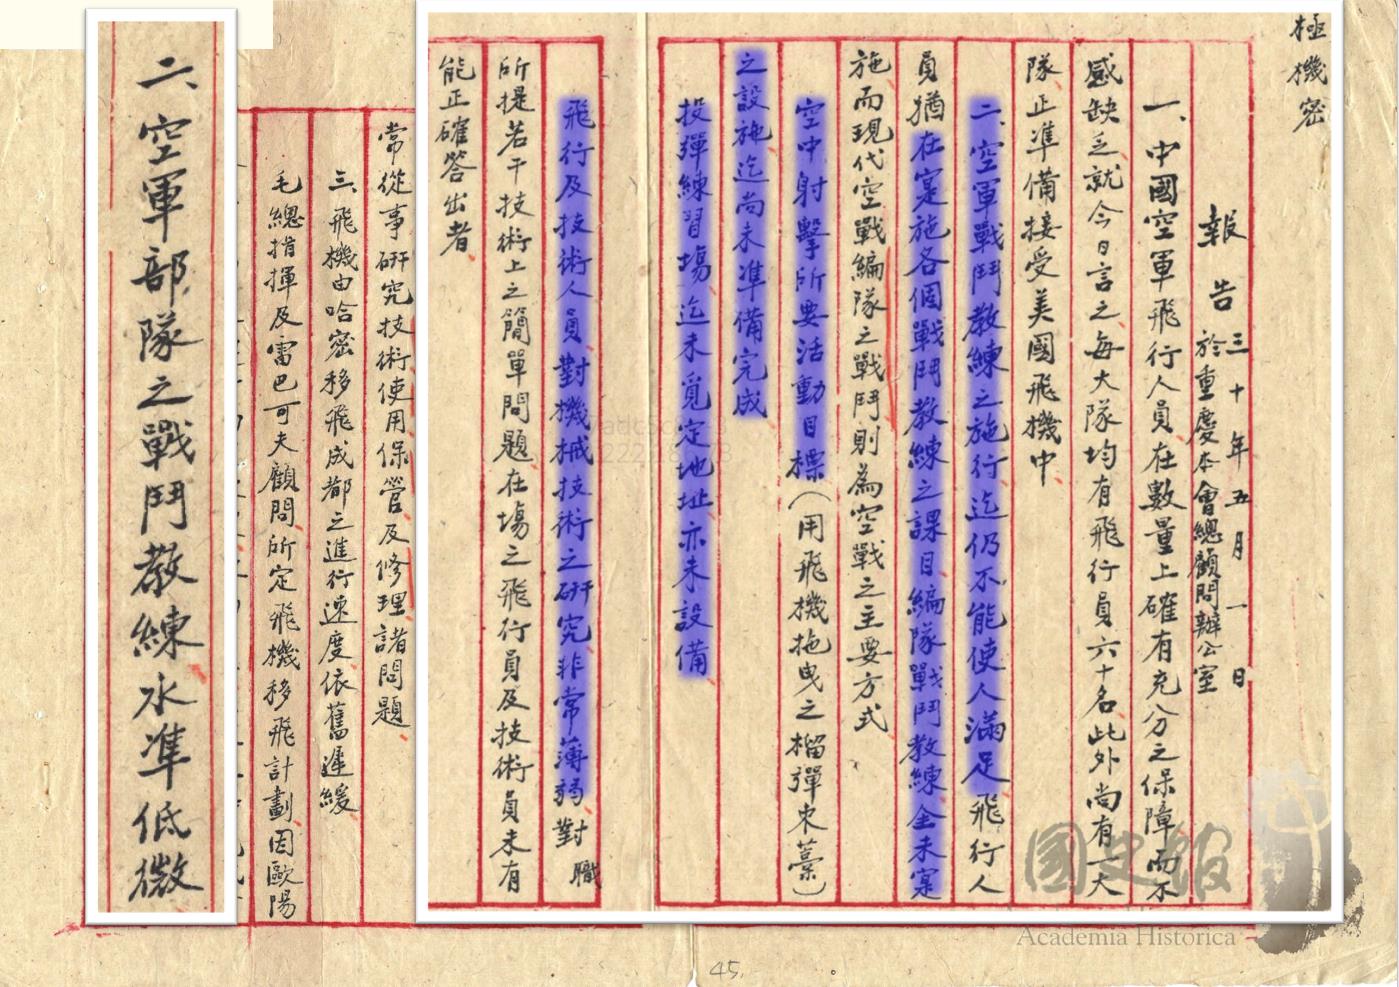 極機密
報告 三十年五月一日
於重慶本會總顧問辦公室
一、中國空軍飛行人員在數量上確有充分之保障而不
感缺乏就今日言之每大隊均有飛行員六十名此外尚有一大
隊正準備接受美國飛機中
二、空軍戰鬥教練之施行迄仍不能使人滿足飛行人
員猶在寔施各個戰鬥教練之課目編隊戰鬥教練全未寔
施而現代空戰編隊之戰鬥則為空戰之主要方式
空中射擊所要活動目標（用飛機拖曳之榴彈束藁）
之設施迄尚未準備完成
投彈練習場迄未覓定地址亦未設備
飛行及技術人員對機械技術之研究非常薄弱對職
所提若干技術上之簡單問題在場之飛行員及技術員未有
能正確答出者
常從事研究技術使用保管及修理諸問題
三、飛機由哈密移飛成都之進行速度依舊遲緩
毛總指揮及雷巴可夫顧問所定飛機移飛計劃因歐陽
二、空軍部隊之戰鬥教練水準低微
國史館
Academia Historica
45